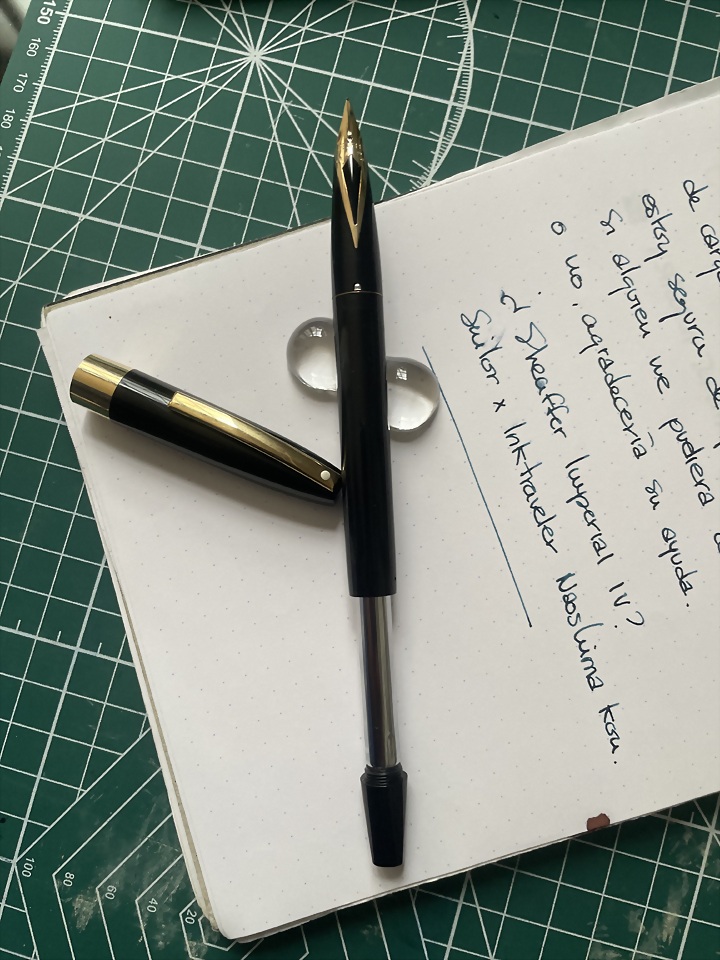 150
160
170
180
de
estoy segura de
si alguien me pudiera
o no, agradecería su ayuda.
¿Sheaffer Imperial IV?
Sailor x Inktraveler Naoshima Kou.
100
80
60
40
20